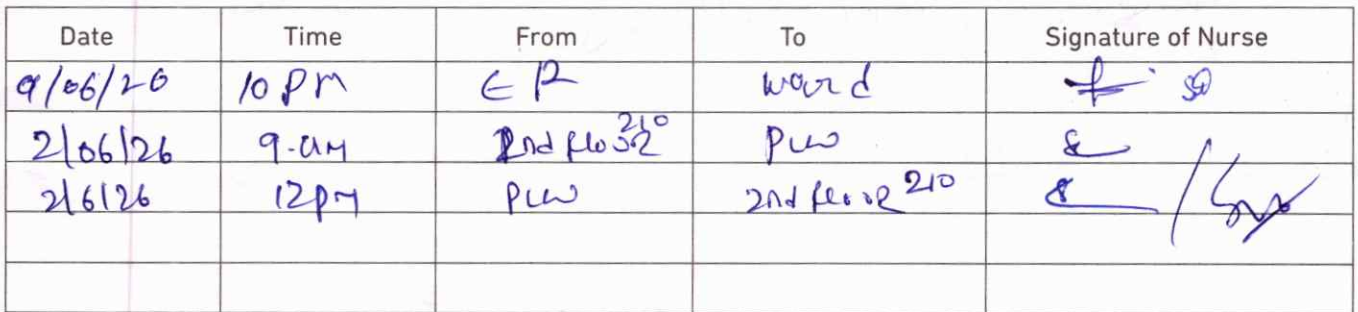 Date Time From To Signature of Nurse
9/06/26 10 PM ER ward
2/06/26 9-AM 2nd floor 210 PLW
2/6/26 12PM PLW 2nd floor 210